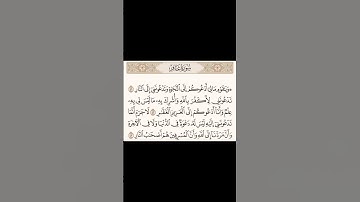 سُورَةُ غَافِرٍ
۞ وَيَٰقَوْمِ مَا لِيٓ أَدْعُوكُمْ إِلَى ٱلنَّجَوٰةِ وَتَدْعُونَنِيٓ إِلَى ٱلنَّارِ
تَدْعُونَنِي لِأَكْفُرَ بِٱللَّهِ وَأُشْرِكَ بِهِۦ مَا لَيْسَ لِي بِهِۦ
عِلْمٌ وَأَنَا۠ أَدْعُوكُمْ إِلَى ٱلْعَزِيزِ ٱلْغَفَّٰرِ لَا جَرَمَ أَنَّمَا
تَدْعُونَنِيٓ إِلَيْهِ لَيْسَ لَهُۥ دَعْوَةٌ فِي ٱلدُّنْيَا وَلَا فِي ٱلْأٓخِرَةِ
وَأَنَّ مَرَدَّنَآ إِلَى ٱللَّهِ وَأَنَّ ٱلْمُسْرِفِينَ هُمْ أَصْحَٰبُ ٱلنَّارِ